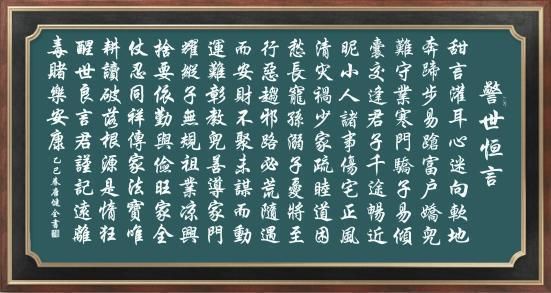 警世恒言
甜言灌耳心迷向軟地
奔蹄步易蹌富戶嬌兒
難守業寒門驕子易傾
囊交逢君子千途暢近
昵小人諸事傷宅正風
清灾禍少家疏睦道困
愁長寵孫溺子憂將至
行惡趨邪路必荒隨遇
而安財不聚未謀而動
運難彰教兒善導家門
耀縱子無規祖業凉興
捨要依勤與儉旺家全
仗忍同祥傳家法寶唯
耕讀破落根源是惰狂
醒世良言君謹記遠離
毒賭樂安康 乙巳春唐健全書